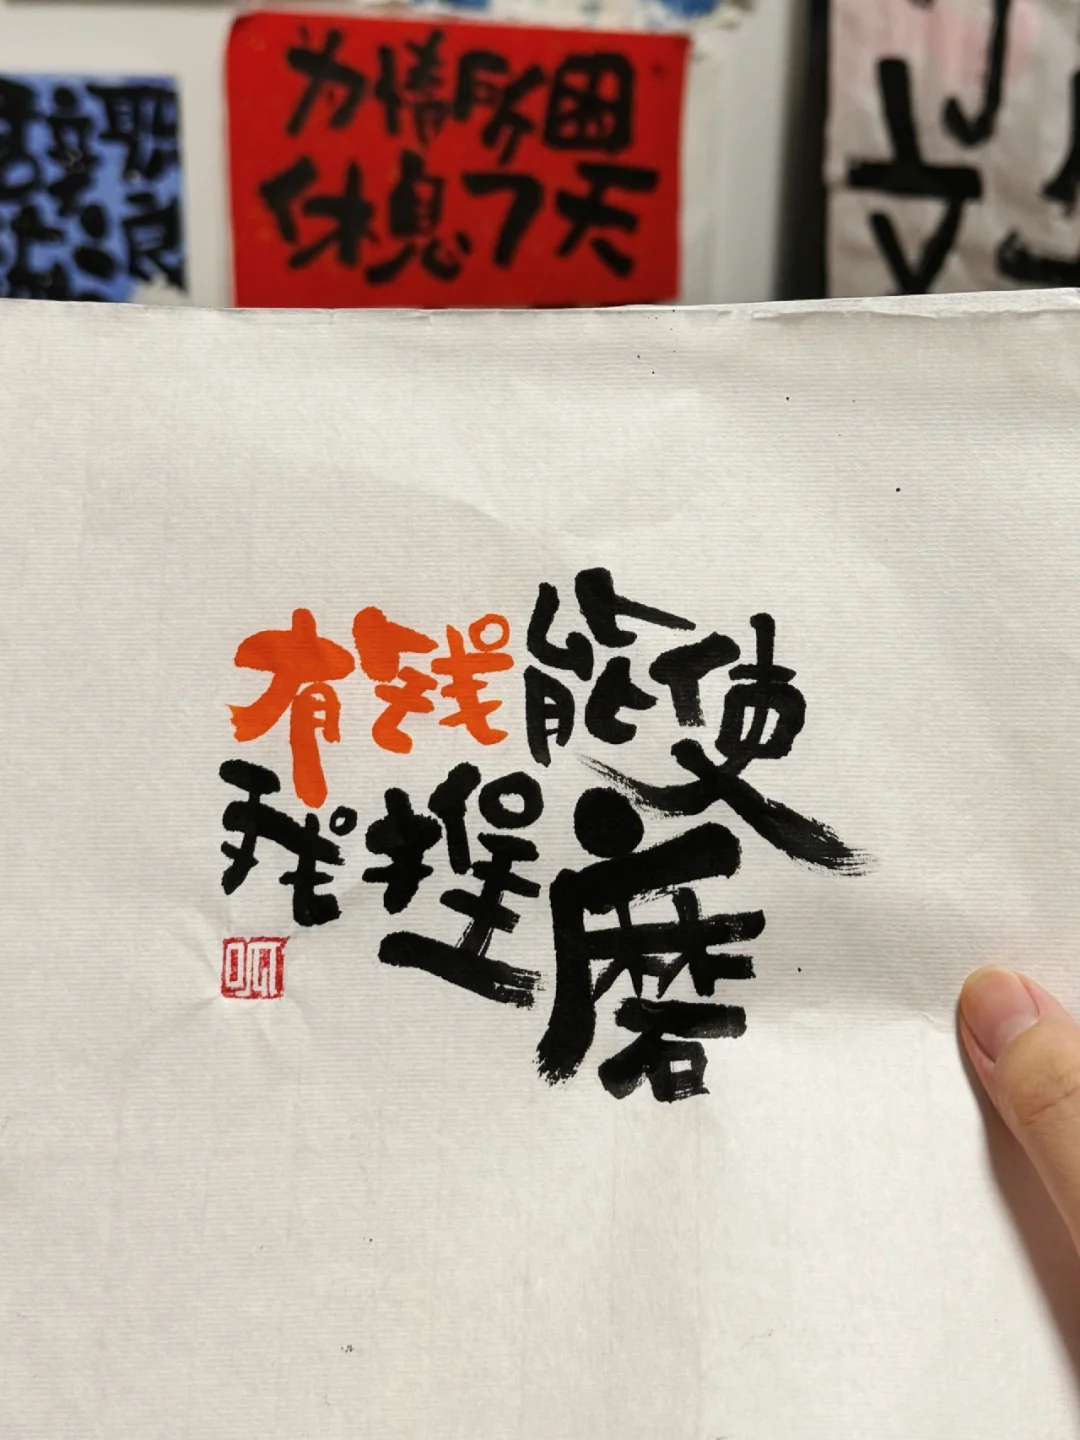 为情所困
休息7天
有钱能使
我推磨